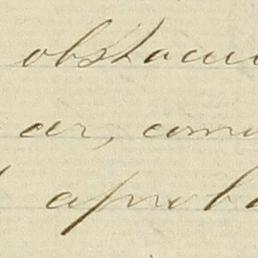 obstacu
ar, como
aprob